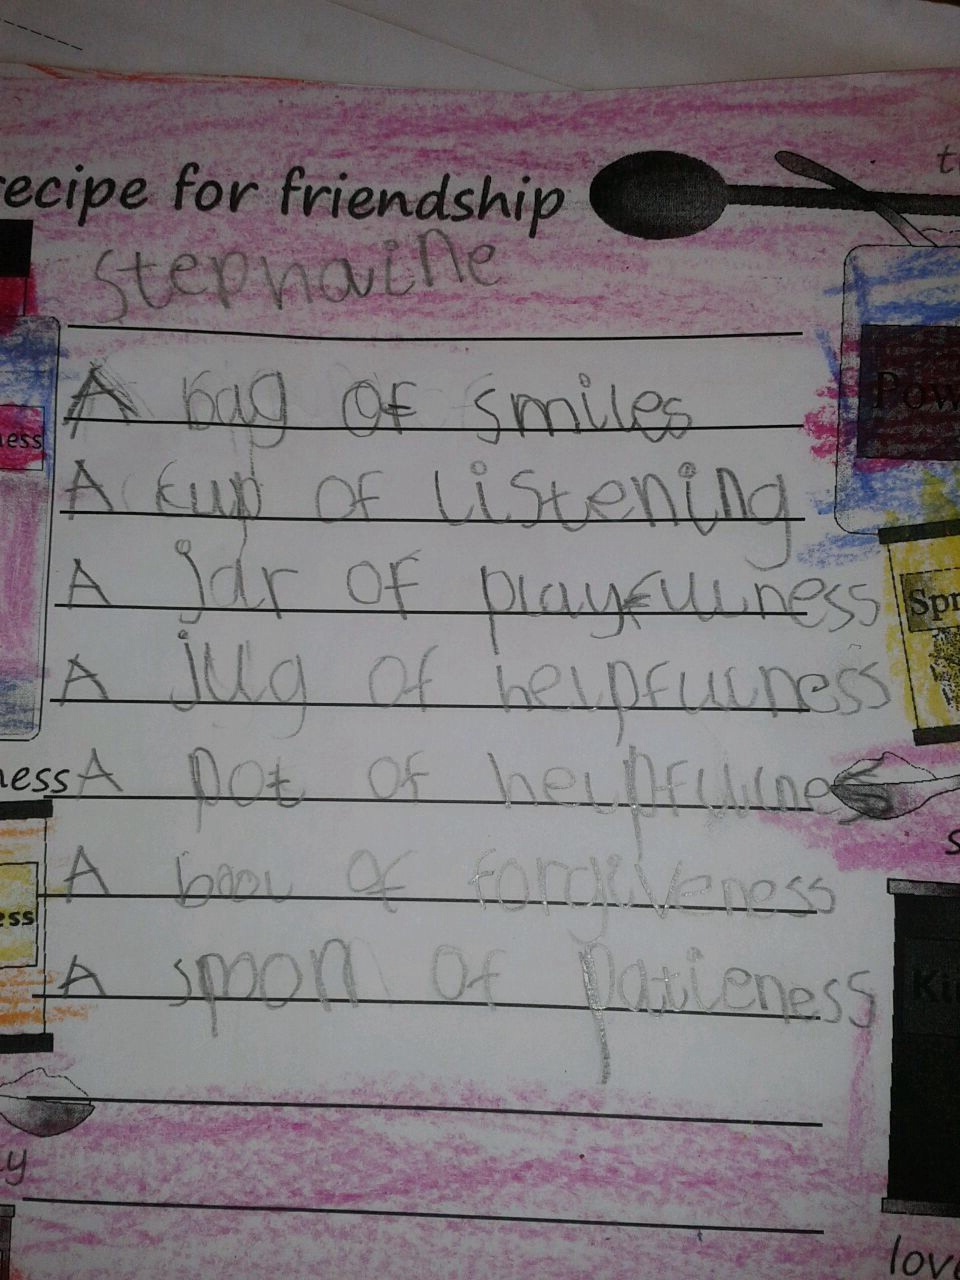 recipe for friendship
Stephaine
A bag of smiles
A kup of listening
A jar of playfulness
A jug of helpfulness
A pot of helpfulness
A bool of forgiveness
A spoon of patieness
ess
ness
ess
y
t
Pow
Spr
s
Ki
lov